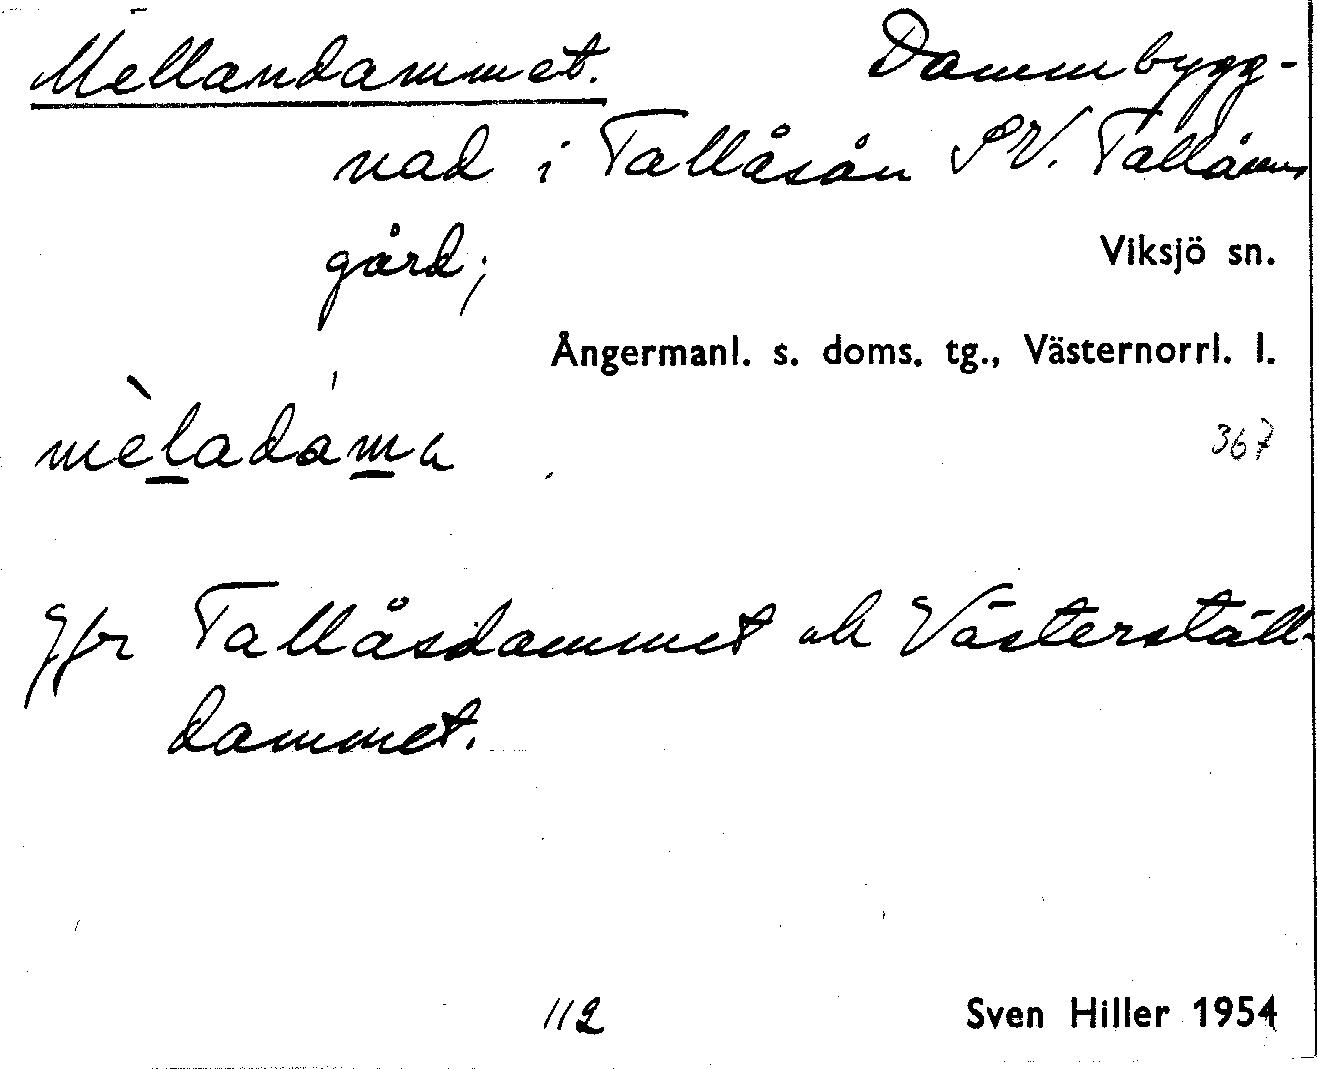 Mellandammet. Dammbygg-
nad i Tallåsån SV. Tallåsens
gård;
Viksjö sn.
Ångermanl. s. doms. tg., Västernorrl. l.
mèladáma
367
Jfr Tallåsdammet och Västerställ-
dammet.
112
Sven Hiller 1954